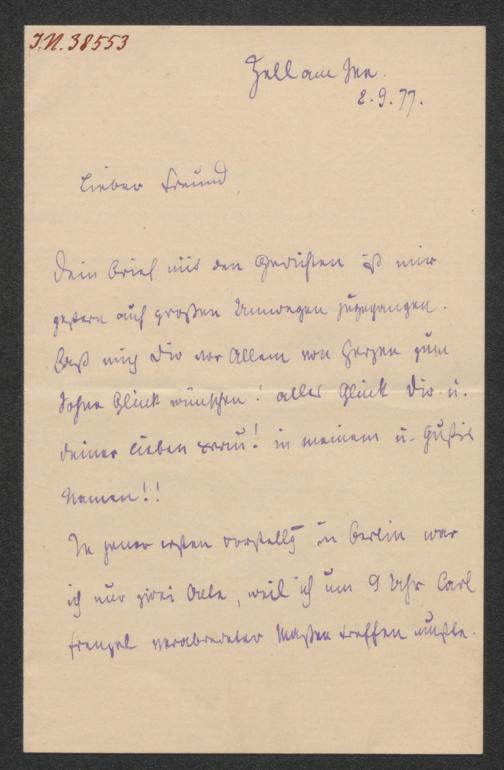 I.N. 38553
Zell am See.
2.9.77.
Lieber Freund,
Dein Brief mit den Gedichten ist mir
gestern auf großen Umwegen zugegangen.
Laß mich Dir vor Allem von Herzen zum
Sohne Glück wünschen! alles Glück Dir u.
deiner lieben Frau! in meinem u. Gustis
Namen!!
In jener ersten Vorstellg in Berlin war
ich nur zwei Akte, weil ich um 9 Uhr Carl
Frenzel verabredeter Maßen treffen mußte.